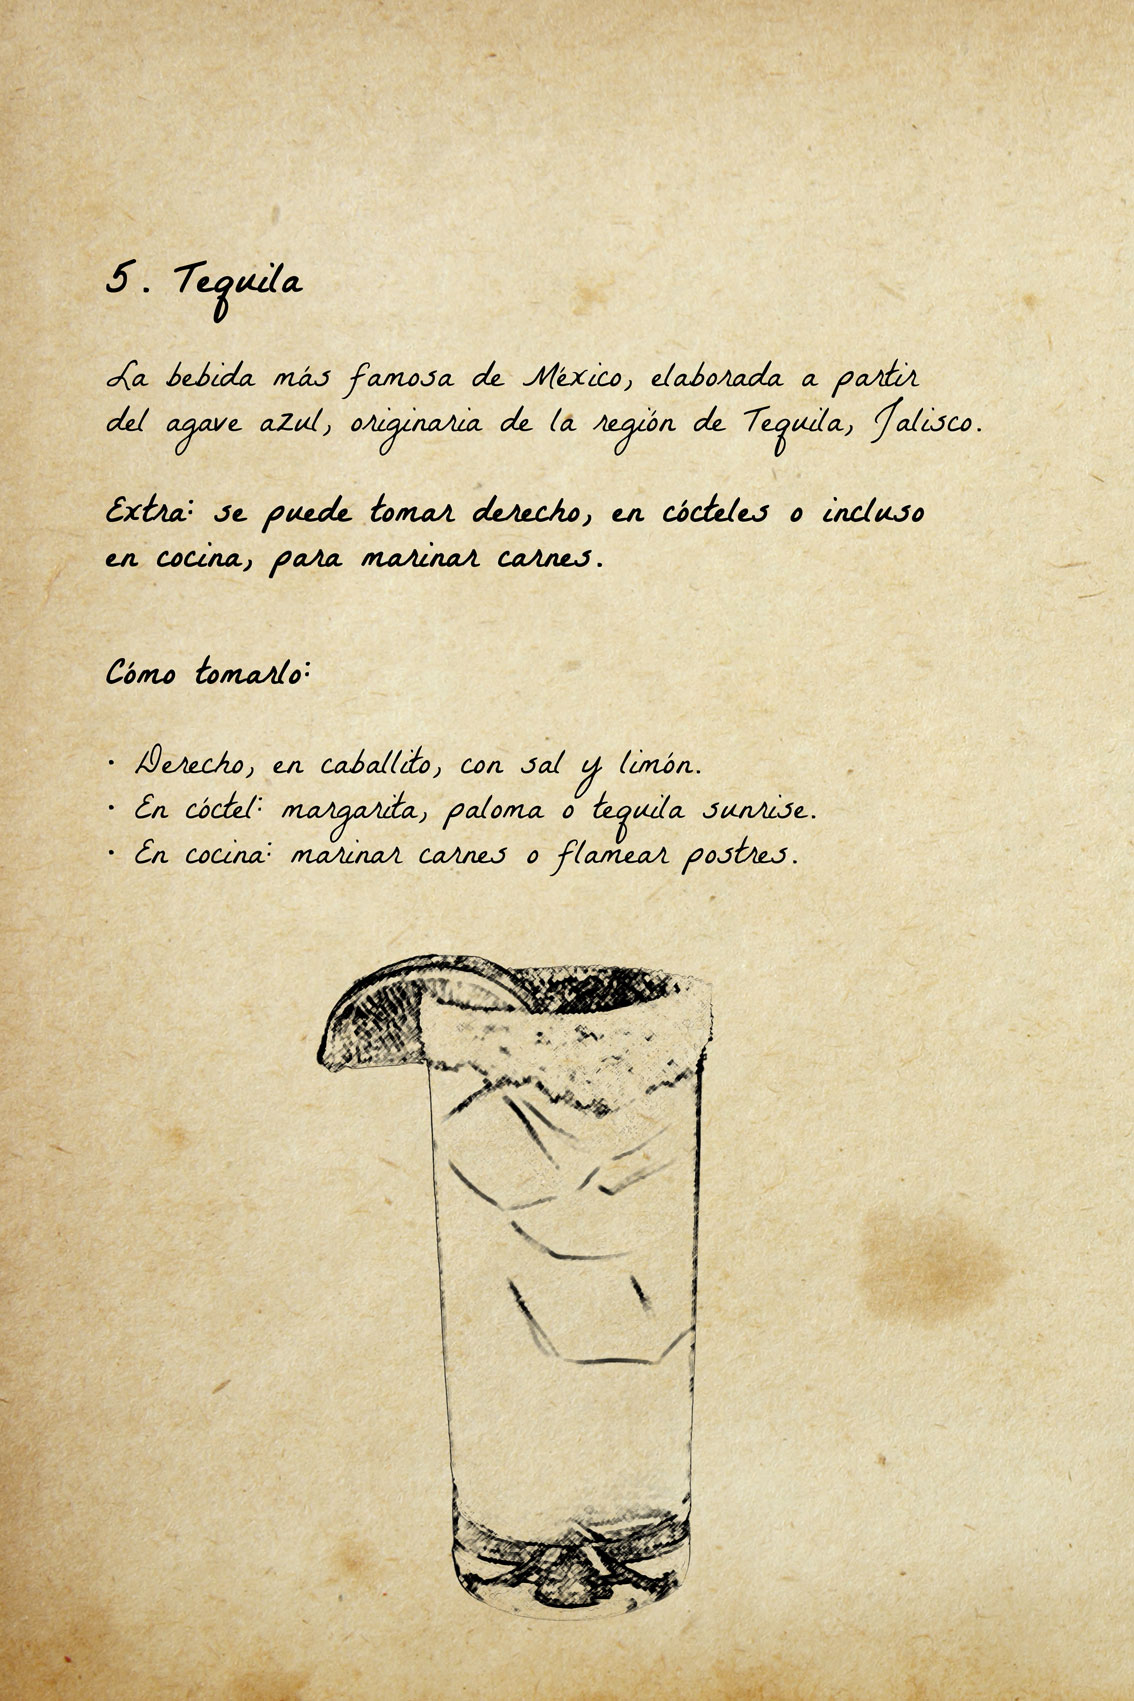 5. Tequila
La bebida más famosa de México, elaborada a partir
del agave azul, originaria de la región de Tequila, Jalisco.
Extra: se puede tomar derecho, en cócteles o incluso
en cocina, para marinar carnes.
Cómo tomarlo:
· Derecho, en caballito, con sal y limón.
· En cóctel: margarita, paloma o tequila sunrise.
· En cocina: marinar carnes o flamear postres.